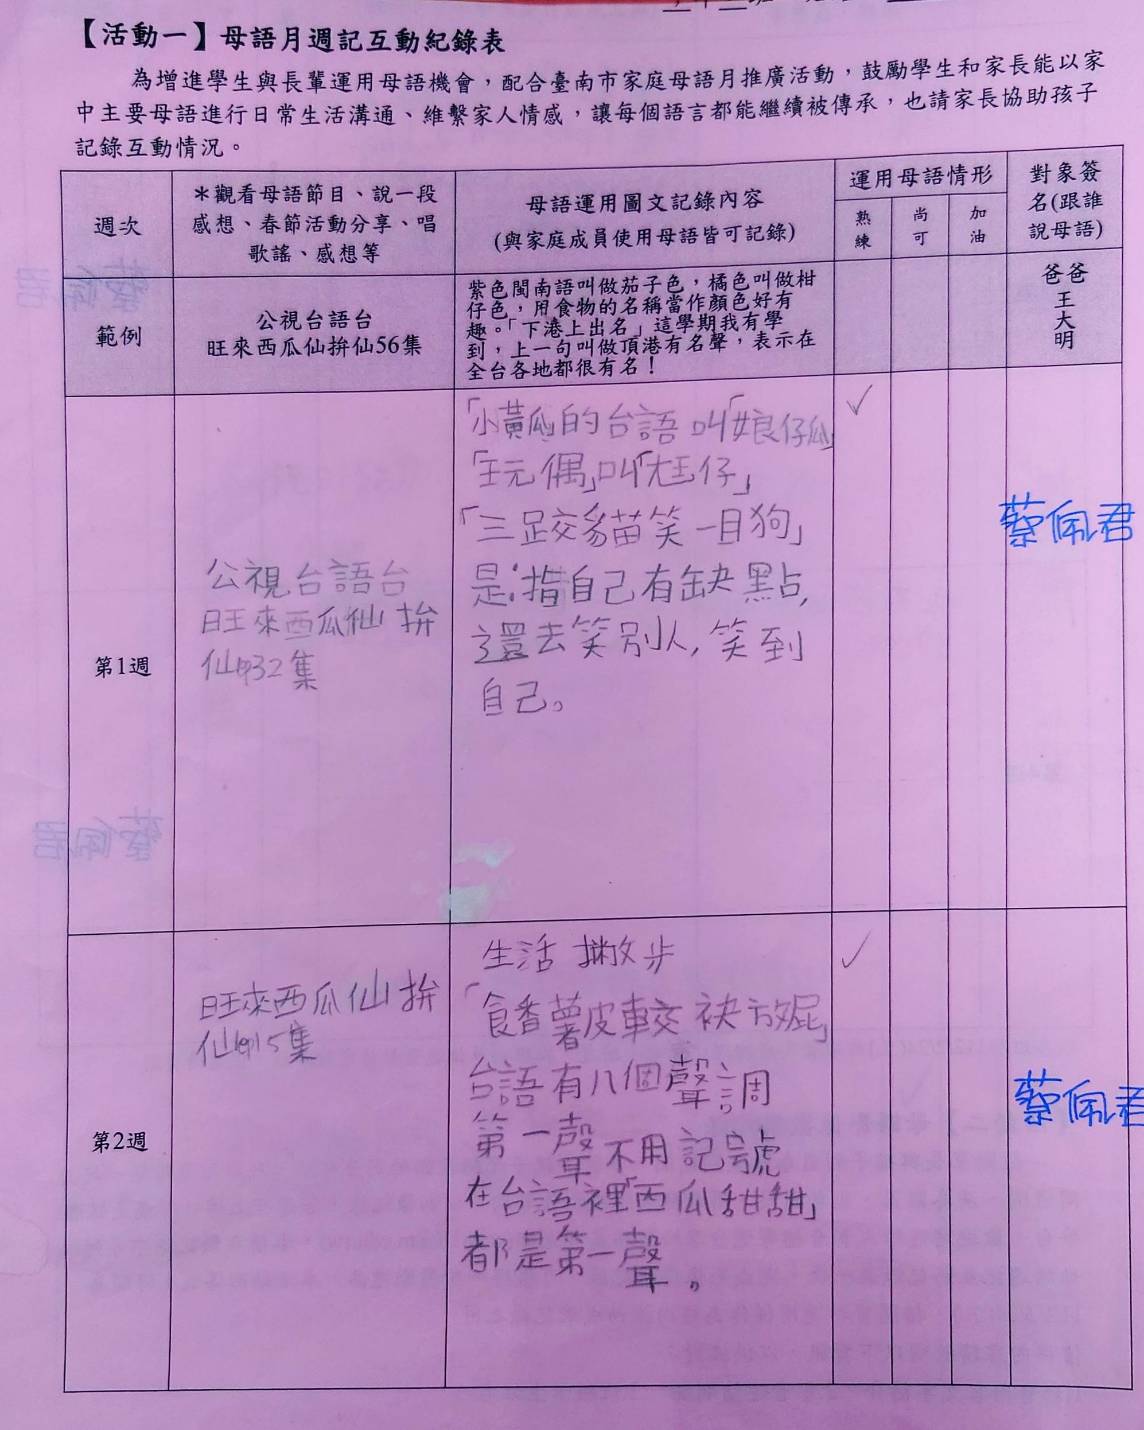 【活動一】母語月週記互動紀錄表
為增進學生與長輩運用母語機會，配合臺南市家庭母語月推廣活動，鼓勵學生和家長能以家
中主要母語進行日常生活溝通、維繫家人情感，讓每個語言都能繼續被傳承，也請家長協助孩子
記錄互動情況。
週次
＊觀看母語節目、說一段
感想、春節活動分享、唱
歌謠、感想等
母語運用圖文記錄內容
(與家庭成員使用母語皆可記錄)
運用母語情形
熟練
尚可
加油
對象簽
名(跟誰
說母語)
範例
公視台語台
旺來西瓜仙拚仙56集
紫色閩南語叫做茄子色，橘色叫做柑
仔色，用食物的名稱當作顏色好有
趣。「下港上出名」這學期我有學
到，上一句叫做頂港有名聲，表示在
全台各地都很有名！
爸爸
王
大
明
第1週
公視台語台
旺來西瓜仙拚
仙932集
「小黃瓜的台語叫「娘仔瓜
「玩偶」叫「尪仔」
「三跤貓笑一目狗」
是指自己有缺點,
還去笑別人,笑到
自己。
✓
蔡佩君
第2週
旺來西瓜仙拚
仙915集
生活撇步
「食番薯皮較袂放屁」
台語有八個聲調
第一聲不用記號
在台語裡「西瓜甜甜」
都是第一聲。
✓
蔡佩君